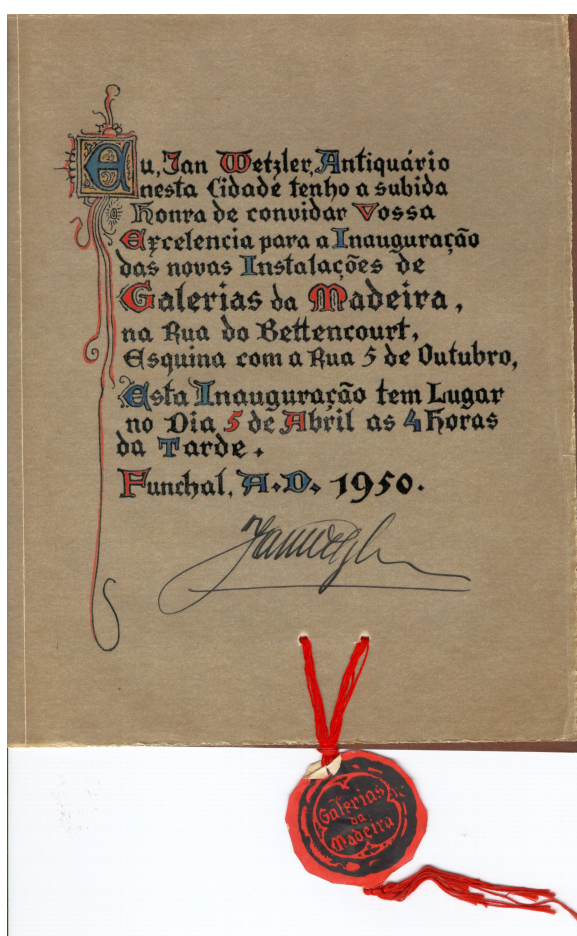 Eu, Jan Wetzler, Antiquário
nesta Cidade tenho a subida
Honra de convidar Vossa
Excelencia para a Inauguração
das novas Instalações de
Galerias da Madeira,
na Rua do Bettencourt,
Esquina com a Rua 5 de Outubro,
Esta Inauguração tem Lugar
no Dia 5 de Abril as 4 Horas
da Tarde.
Funchal, A.D. 1950.
Galerias
da
Madeira